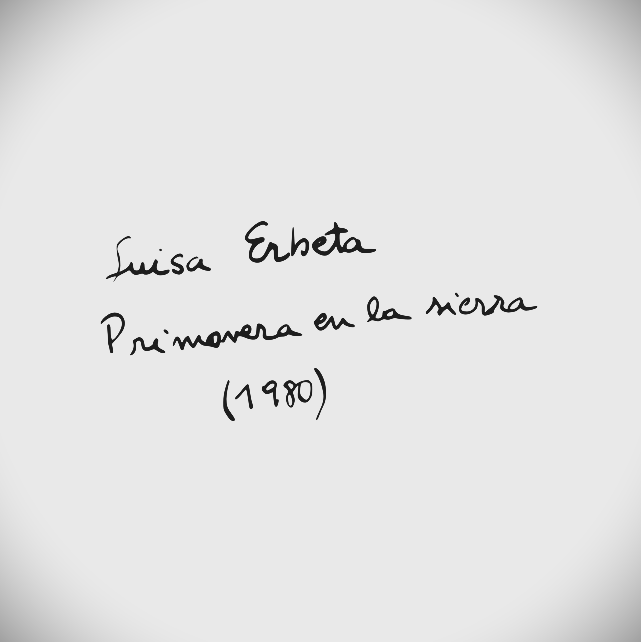 Luisa Erbeta
Primavera en la sierra
(1980)